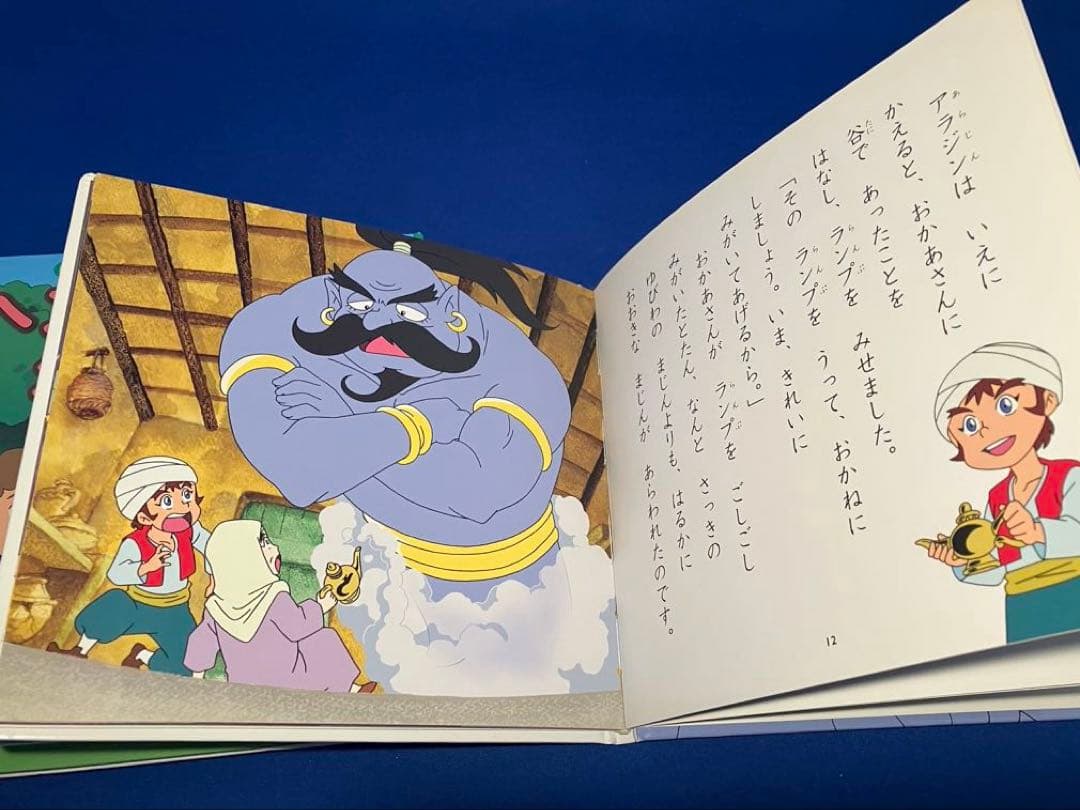 アラジンは　いえに
かえると、おかあさんに
谷で　あったことを
はなし、ランプを　みせました。
「その　ランプを　うって、おかねに
しましょう。いま、きれいに
みがいてあげるから。」
おかあさんが　ランプを　ごしごし
みがいたとたん、なんと　さっきの
ゆびわの　まじんよりも、はるかに
おおきな　まじんが　あらわれたのです。
12